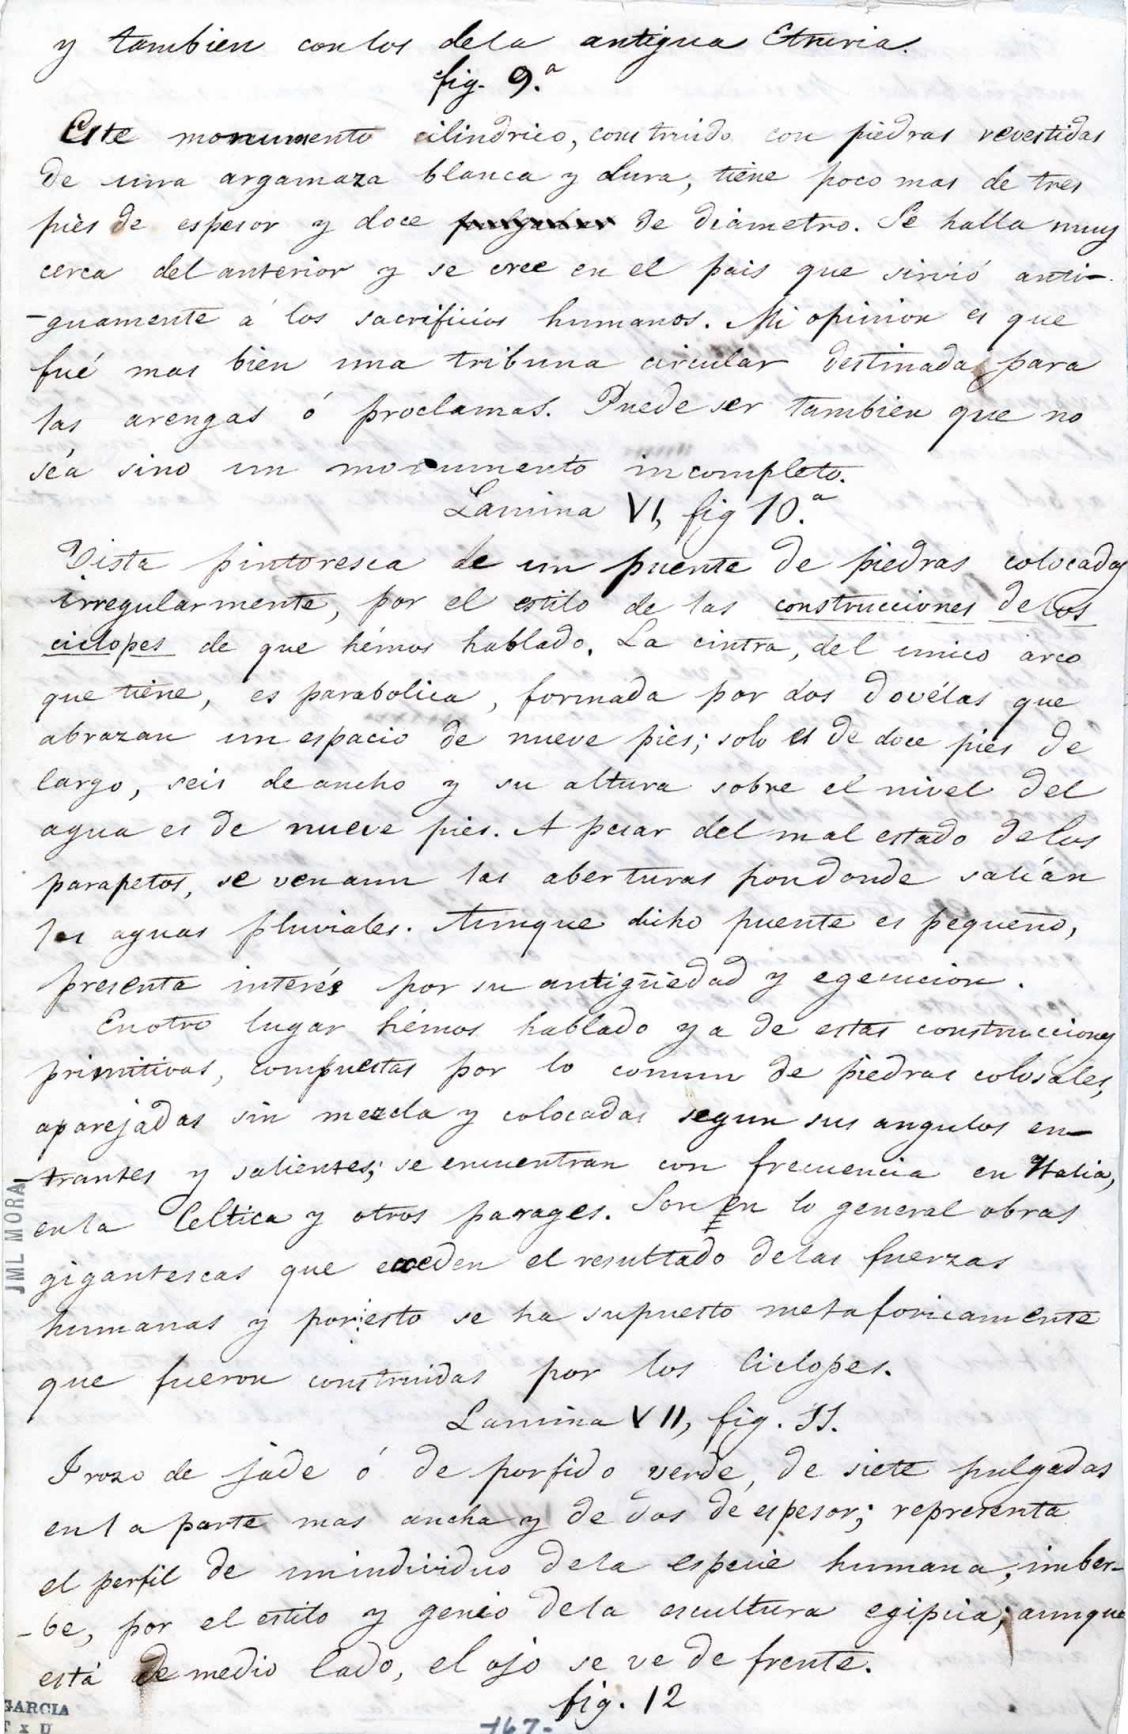 y tambien con los de la antigua Etruria.
fig. 9.ª
Este monumento cilindrico, construido con piedras revestidas
de una argamaza blanca y dura, tiene poco mas de tres
piès de espesor y doce de diametro. Se halla muy
cerca del anterior y se cree en el pais que sirvió anti-
-guamente á los sacrificios humanos. Mi opinion es que
fué mas bien una tribuna circular destinada para
las arengas ó proclamas. Puede ser tambien que no
séa sino un monumento incompleto.
Lamina VI, fig 10.ª
Vista pintoresca de un puente de piedras colocadas
irregularmente, por el estilo de las construcciones de los
ciclopes de que hémos hablado. La cintra, del unico arco
que tiene, es parabolica, formada por dos dovélas que
abrazan un espacio de nueve pies; solo es de doce pies de
largo, seis de ancho y su altura sobre el nivel del
agua es de nueve pies. A pesar del mal estado de los
parapetos, se ven aun las aberturas por donde salían
las aguas pluviales. Aunque dicho puente es pequeño,
presenta interés por su antigüedad y egecucion.
En otro lugar hémos hablado ya de estas construcciones
primitivas, compuestas por lo comun de piedras colosáles,
aparejadas sin mezcla y colocadas segun sus angulos en-
trantes y salientes; se encuentran con frecuencia en Italia,
en la Celtica y otros parages. Son en lo general obras
gigantescas que exceden el resultado de las fuerzas
humanas y por esto se ha supuesto metaforicamente
que fueron construidas por los Ciclopes.
Lamina VII, fig. 11.
Trozo de jade ó de porfido verde, de siete pulgadas
en la parte mas ancha y de dos de espesor; representa
el perfil de un individuo de la especie humana, imber-
-be, por el estilo y genio de la escultura egipcia; aunque
está de medio lado, el ojo se ve de frente.
fig. 12
-167-
JML MORA
GARCIA